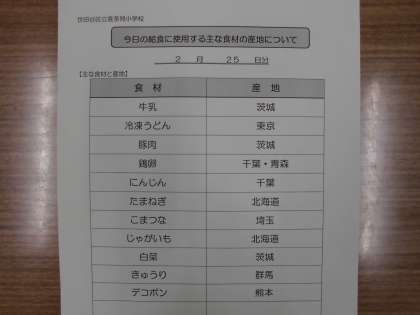 世田谷区立喜多見小学校
今日の給食に使用する主な食材の産地について
2 月 25 日分
【主な食材と産地】
食 材 産 地
牛乳 茨城
冷凍うどん 東京
豚肉 茨城
鶏卵 千葉・青森
にんじん 千葉
たまねぎ 北海道
こまつな 埼玉
じゃがいも 北海道
白菜 茨城
きゅうり 群馬
デコポン 熊本